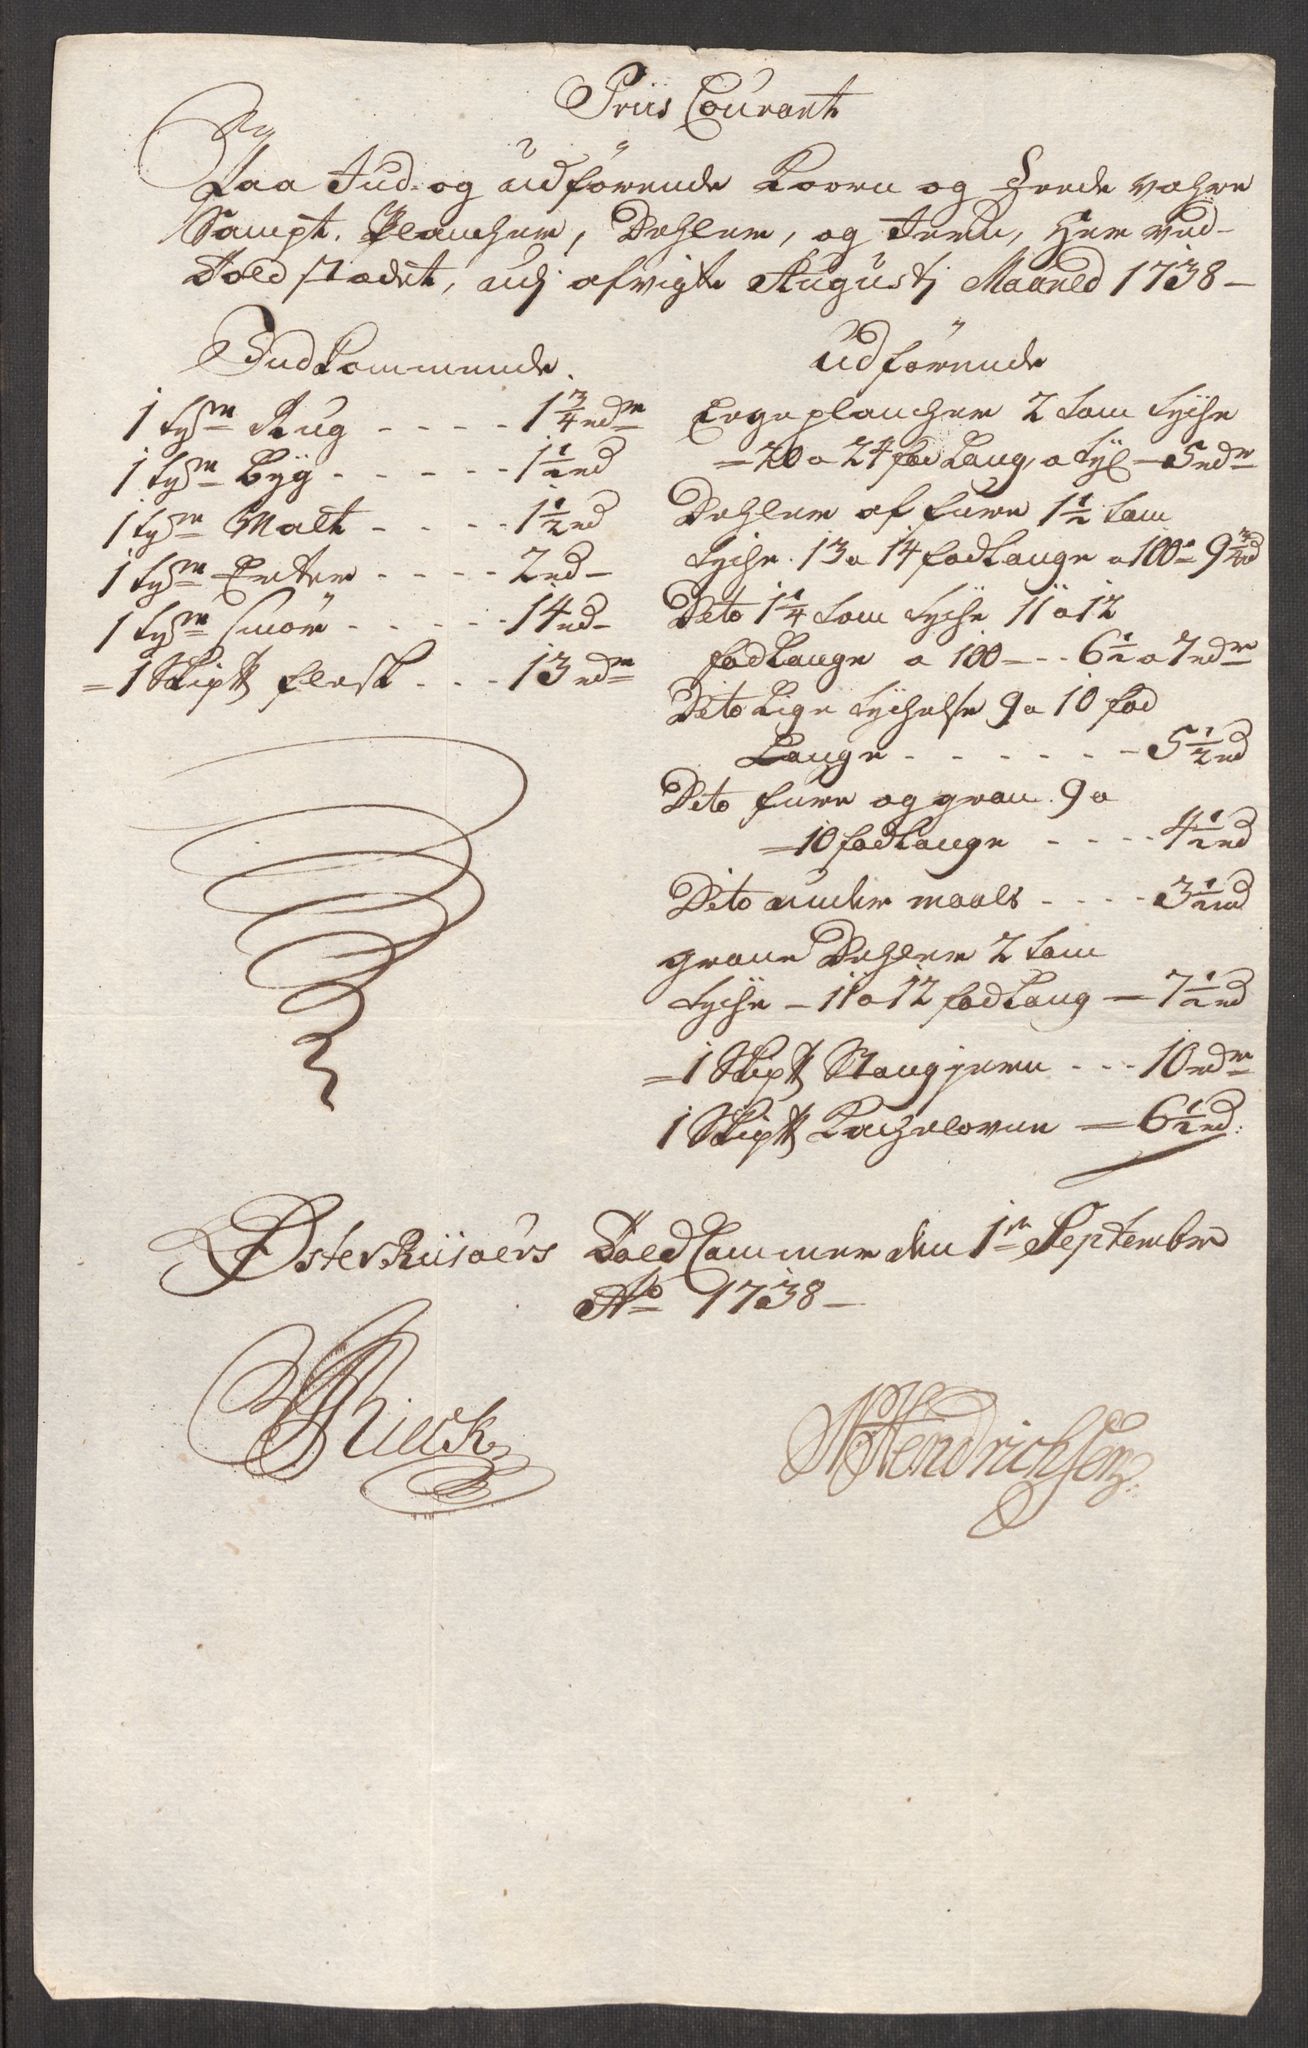 Priis Courant
Paa Ind- og udförende Koorn og Feede vahre
Sampt. Plancher, Dehler, og Jern, her ved-
Told stædet, udj afvigte Augustj Maaned 1738 –
Indkommende.
1 tyn͠e Rug - - - - 1 3/4 rdr
1 tyn͠e Byg - - - - - 1 1/2 rd
1 tyn͠e Malt - - - - 1 1/2 rd
1 tyn͠e Erter - - - - 2 rd –
1 tyn͠e Smör - - - - - 14 rd –
= 1 Skip℔ flesk - - - 13 rdr
udförende
Eegeplancher 2 tom tyche
= 20 a 24 fod Lang, a tyl – 5 rdr
Dehler af furre 1 1/2 tom
tyche. 13 a 14 fod Lange a 100 = 9 3/4 rd
Dito 1 1/4 tom tyche 11 a 12
fod Lange a 100 - - - 6 1/2 a 7 rdr
Dito Lige tychelse 9 a 10 fod
Lange - - - - - - - 5 1/2 rd
Dito furre og gran. 9 a
= 10 fod Lange - - - - 4 1/2 rd
Dito under maals - - - - 3 1/2 rd
grane Dehler 2 tom
tyche – 11 a 12 fod Lang – 7 1/2 rd
= 1 Skip℔ Stangjern - - - 10 rdr
1 Skip℔ Kachelovne = 6 1/2 rd:
ØsterRiisøers Told Cammer den 1te September
Ao 1738 –
Rieck
Hendrichsen